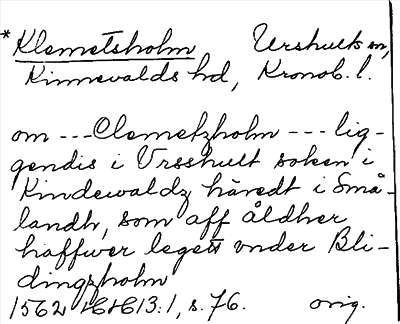 *Klemetsholm Urshults sn,
Kinnevalds hd, Kronob. l.
om --- Clemetzholm --- lig-
gendis i Vrsshult soken i
Kindewaldz häredt i Små-
landh, som aff åldher
haffwer legett vnder Bli-
dingzholm
1562 HH 13:1, s. 76. orig.